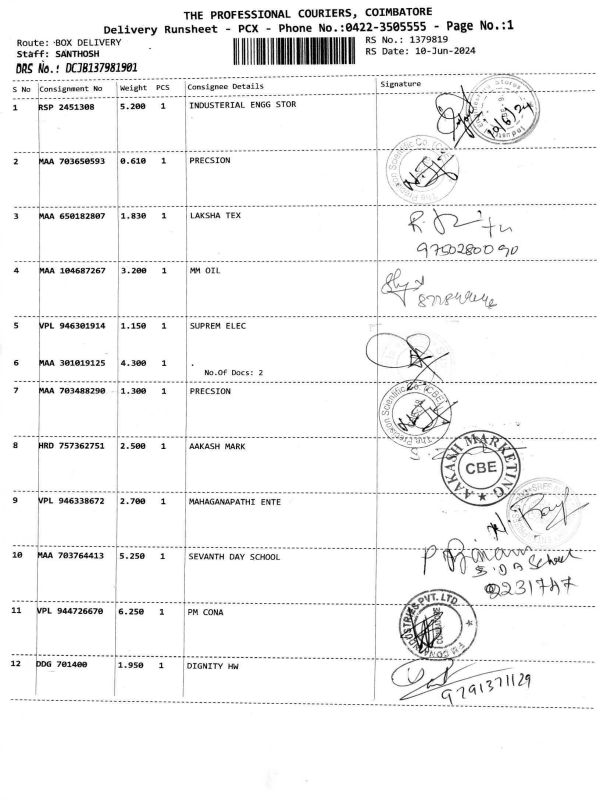 THE PROFESSIONAL COURIERS, COIMBATORE
Delivery Runsheet - PCX - Phone No.:0422-3505555 - Page No.:1
Route: BOX DELIVERY
RS No.: 1379819
Staff: SANTHOSH
RS Date: 10-Jun-2024
DRS No.: DCJB137981901
S No Consignment No Weight PCS Consignee Details Signature
1 RSP 2451308 5.200 1 INDUSTERIAL ENGG STOR
10/6/24
2 MAA 703650593 0.610 1 PRECSION
The Precision Scientific Co. (CBE)
3 MAA 650182807 1.830 1 LAKSHA TEX
9750280090
4 MAA 104687267 3.200 1 MM OIL
5 VPL 946301914 1.150 1 SUPREM ELEC
6 MAA 301019125 4.300 1 .
No.Of Docs: 2
7 MAA 703488290 1.300 1 PRECSION
The Precision Scientific Co. (CBE)
8 HRD 757362751 2.500 1 AAKASH MARK
AAKASH MARKETING
CBE
9 VPL 946338672 2.700 1 MAHAGANAPATHI ENTE
10 MAA 703764413 5.250 1 SEVANTH DAY SCHOOL
S.D.A School
2231747
11 VPL 944726670 6.250 1 PM CONA
INDUSTRIES PVT. LTD.
12 DDG 701400 1.950 1 DIGNITY HW
9791371129